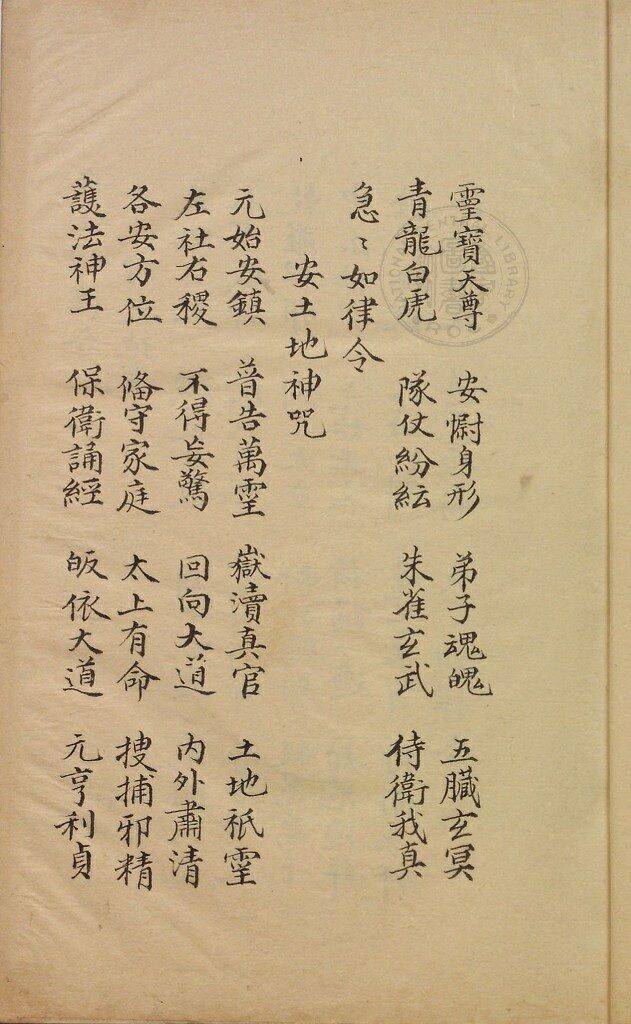 霊寳天尊 安慰身形 弟子魂魄 五臓玄冥
青龍白虎 隊仗紛紜 朱雀玄武 待衛我真
急〻如律令
安土地神咒
元始安鎮 普告萬霊 嶽瀆真官 土地祇霊
左社右稷 不得妄驚 回向大道 內外肅清
各安方位 俻守家庭 太上有命 搜捕邪精
護法神王 保衛誦經 皈依大道 元亨利貞